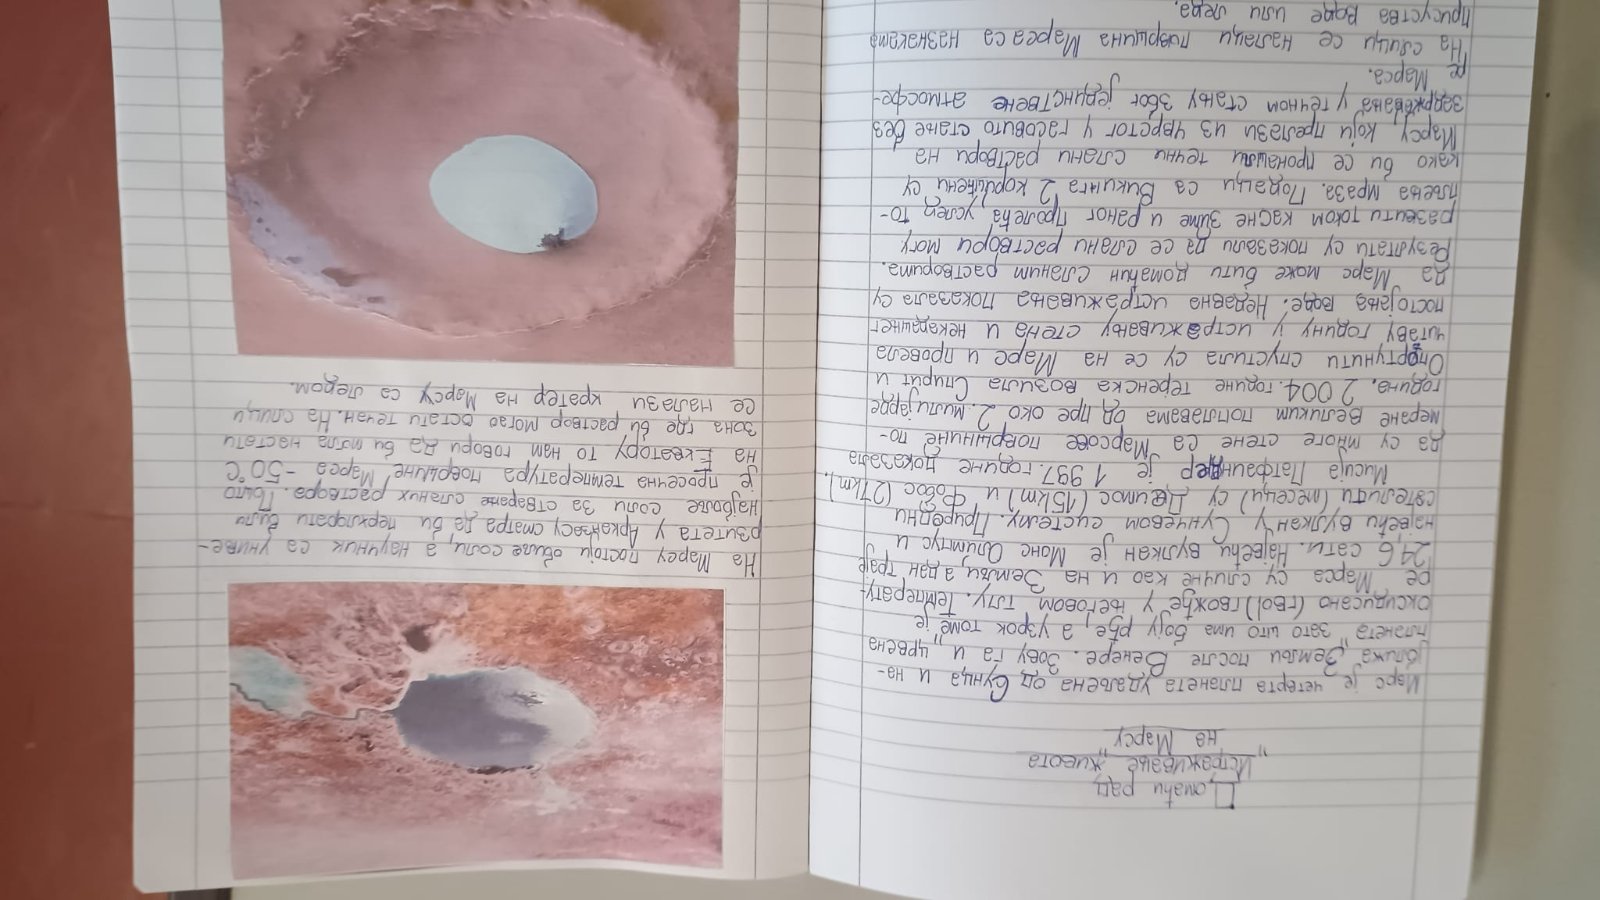 Домаћи рад
"Истраживање живота
на Марсу"
Марс је четврта планета удаљена од Сунца и нај-
ближа Земљи после Венере. Зову га и "црвена
планета" зато што има боју рђе, а узрок томе је
оксидисано (гвој) гвожђе у његовом тлу. Температу-
ре Марса су сличне као и на Земљи а дан траје
24,6 сати. Највећи вулкан је Монс Олимпус и
највећи вулкан у Сунчевом систему. Природни
сателити (месеци) су Деимос (15km) и Фобос (27km).
Мисија Патфајндер је 1997. године показала
да су многе стене са Марсове површине по-
меране великим поплавама од пре око 2 милијарде
година. 2004. године теренска возила Спирит и
Опортунити спустила су се на Марс и провела
читаву годину у истраживању стена и некадашњег
постојања воде. Недавна истраживања показала су
да Марс може бити домаћин сланим растворима.
Резултати су показали да се слани раствори могу
развити током касне зиме и раног пролећа услед то-
пљења мраза. Подаци са Викинга 2 коришћени су
како би се пронашли течни слани раствори на
Марсу, који прелази из чврстог у гасовито стање без
задржавања у течном стању због јединствене атмосфе-
ре Марса.
На слици се налази површина Марса са назнаката
присуства воде или леда.
На Марсу постоји обиље соли, а научник са универ-
зитета у Арканзасу сматра да би перхлорати били
најбоље соли за стварање сланих раствора. Пошто
је просечна температура површине Марса -50°C
на Екватору то нам говори да би могла настати
зона где би раствор могао остати течан. На слици
се налази кратер на Марсу са ледом.